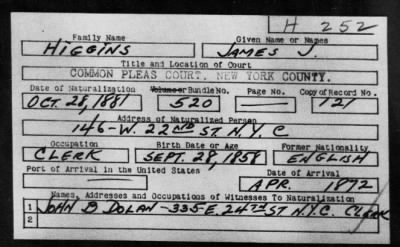 H 252
Family Name Given Name or Names
HIGGINS JAMES J.
Title and Location of Court
COMMON PLEAS COURT, NEW YORK COUNTY.
Date of Naturalization Volume or Bundle No. Page No. Copy of Record No.
OCT. 28, 1881 520 — 121
Address of Naturalized Person
146-W. 22ND ST. N.Y.C
Occupation Birth Date or Age Former Nationality
CLERK SEPT. 28, 1858 ENGLISH
Port of Arrival in the United States Date of Arrival
APR. 1872
Names, Addresses and Occupations of Witnesses To Naturalization
1 JOHN B DOLAN - 335 E. 24TH ST N.Y.C. CLERK
2